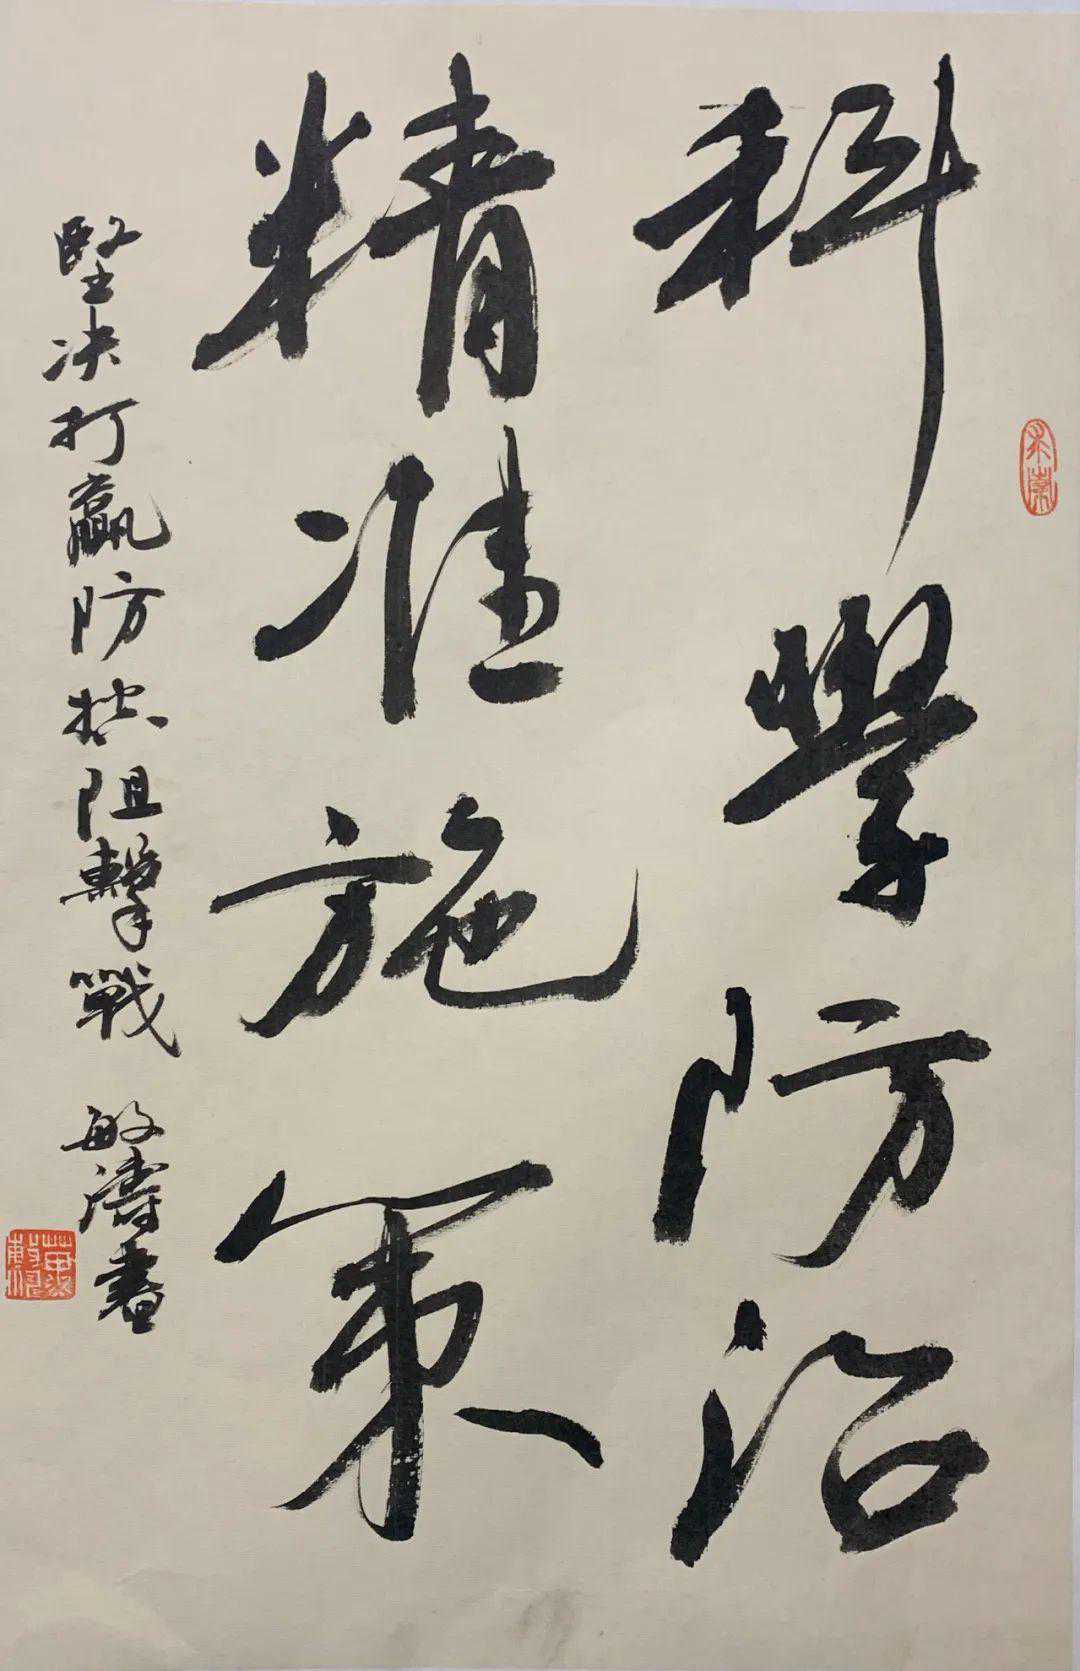 科學防治
精准施策
堅决打贏防控阻擊戰 敏濤書